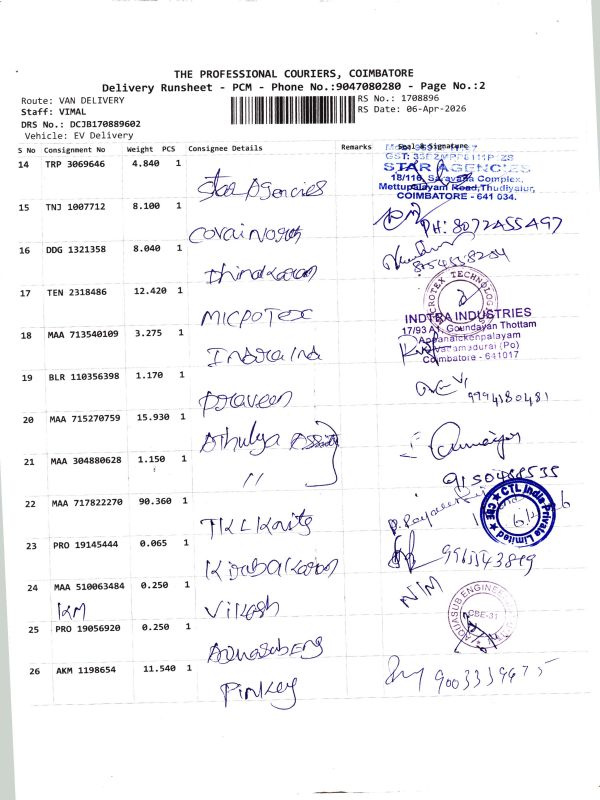 THE PROFESSIONAL COURIERS, COIMBATORE
Delivery Runsheet - PCM - Phone No.:9047080280 - Page No.:2
Route: VAN DELIVERY
RS No.: 1708896
Staff: VIMAL
RS Date: 06-Apr-2026
DRS No.: DCJB170889602
Vehicle: EV Delivery
S No Consignment No Weight PCS Consignee Details Remarks Seal & Signature
14 TRP 3069646 4.840 1 Star Agencies
STAR AGENCIES
18/110, Saravana Complex,
Mettupalayam Road, Thudiyalur,
COIMBATORE - 641 034.
15 TNJ 1007712 8.100 1
PH: 8072455497
16 DDG 1321358 8.040 1 Dhinakaran
17 TEN 2318486 12.420 1 MICROTEX
INDTRA INDUSTRIES
17/93 A1, Goundayan Thottam
Appanaickenpalayam
Coimbatore - 641017
18 MAA 713540109 3.275 1 Indra Ind
19 BLR 110356398 1.170 1 Praveen
9994180481
20 MAA 715270759 15.930 1 Athulya
21 MAA 304880628 1.150 1 "
9150488535
22 MAA 717822270 90.360 1
CTL India Private Limited
CBE
23 PRO 19145444 0.065 1 Kirubakaran
24 MAA 510063484 0.250 1 Vikash
KM
N/M
25 PRO 19056920 0.250 1 Aquasub Eng
AQUASUB ENGINEERING
CBE-31
26 AKM 1198654 11.540 1 Pinkey
9003339675